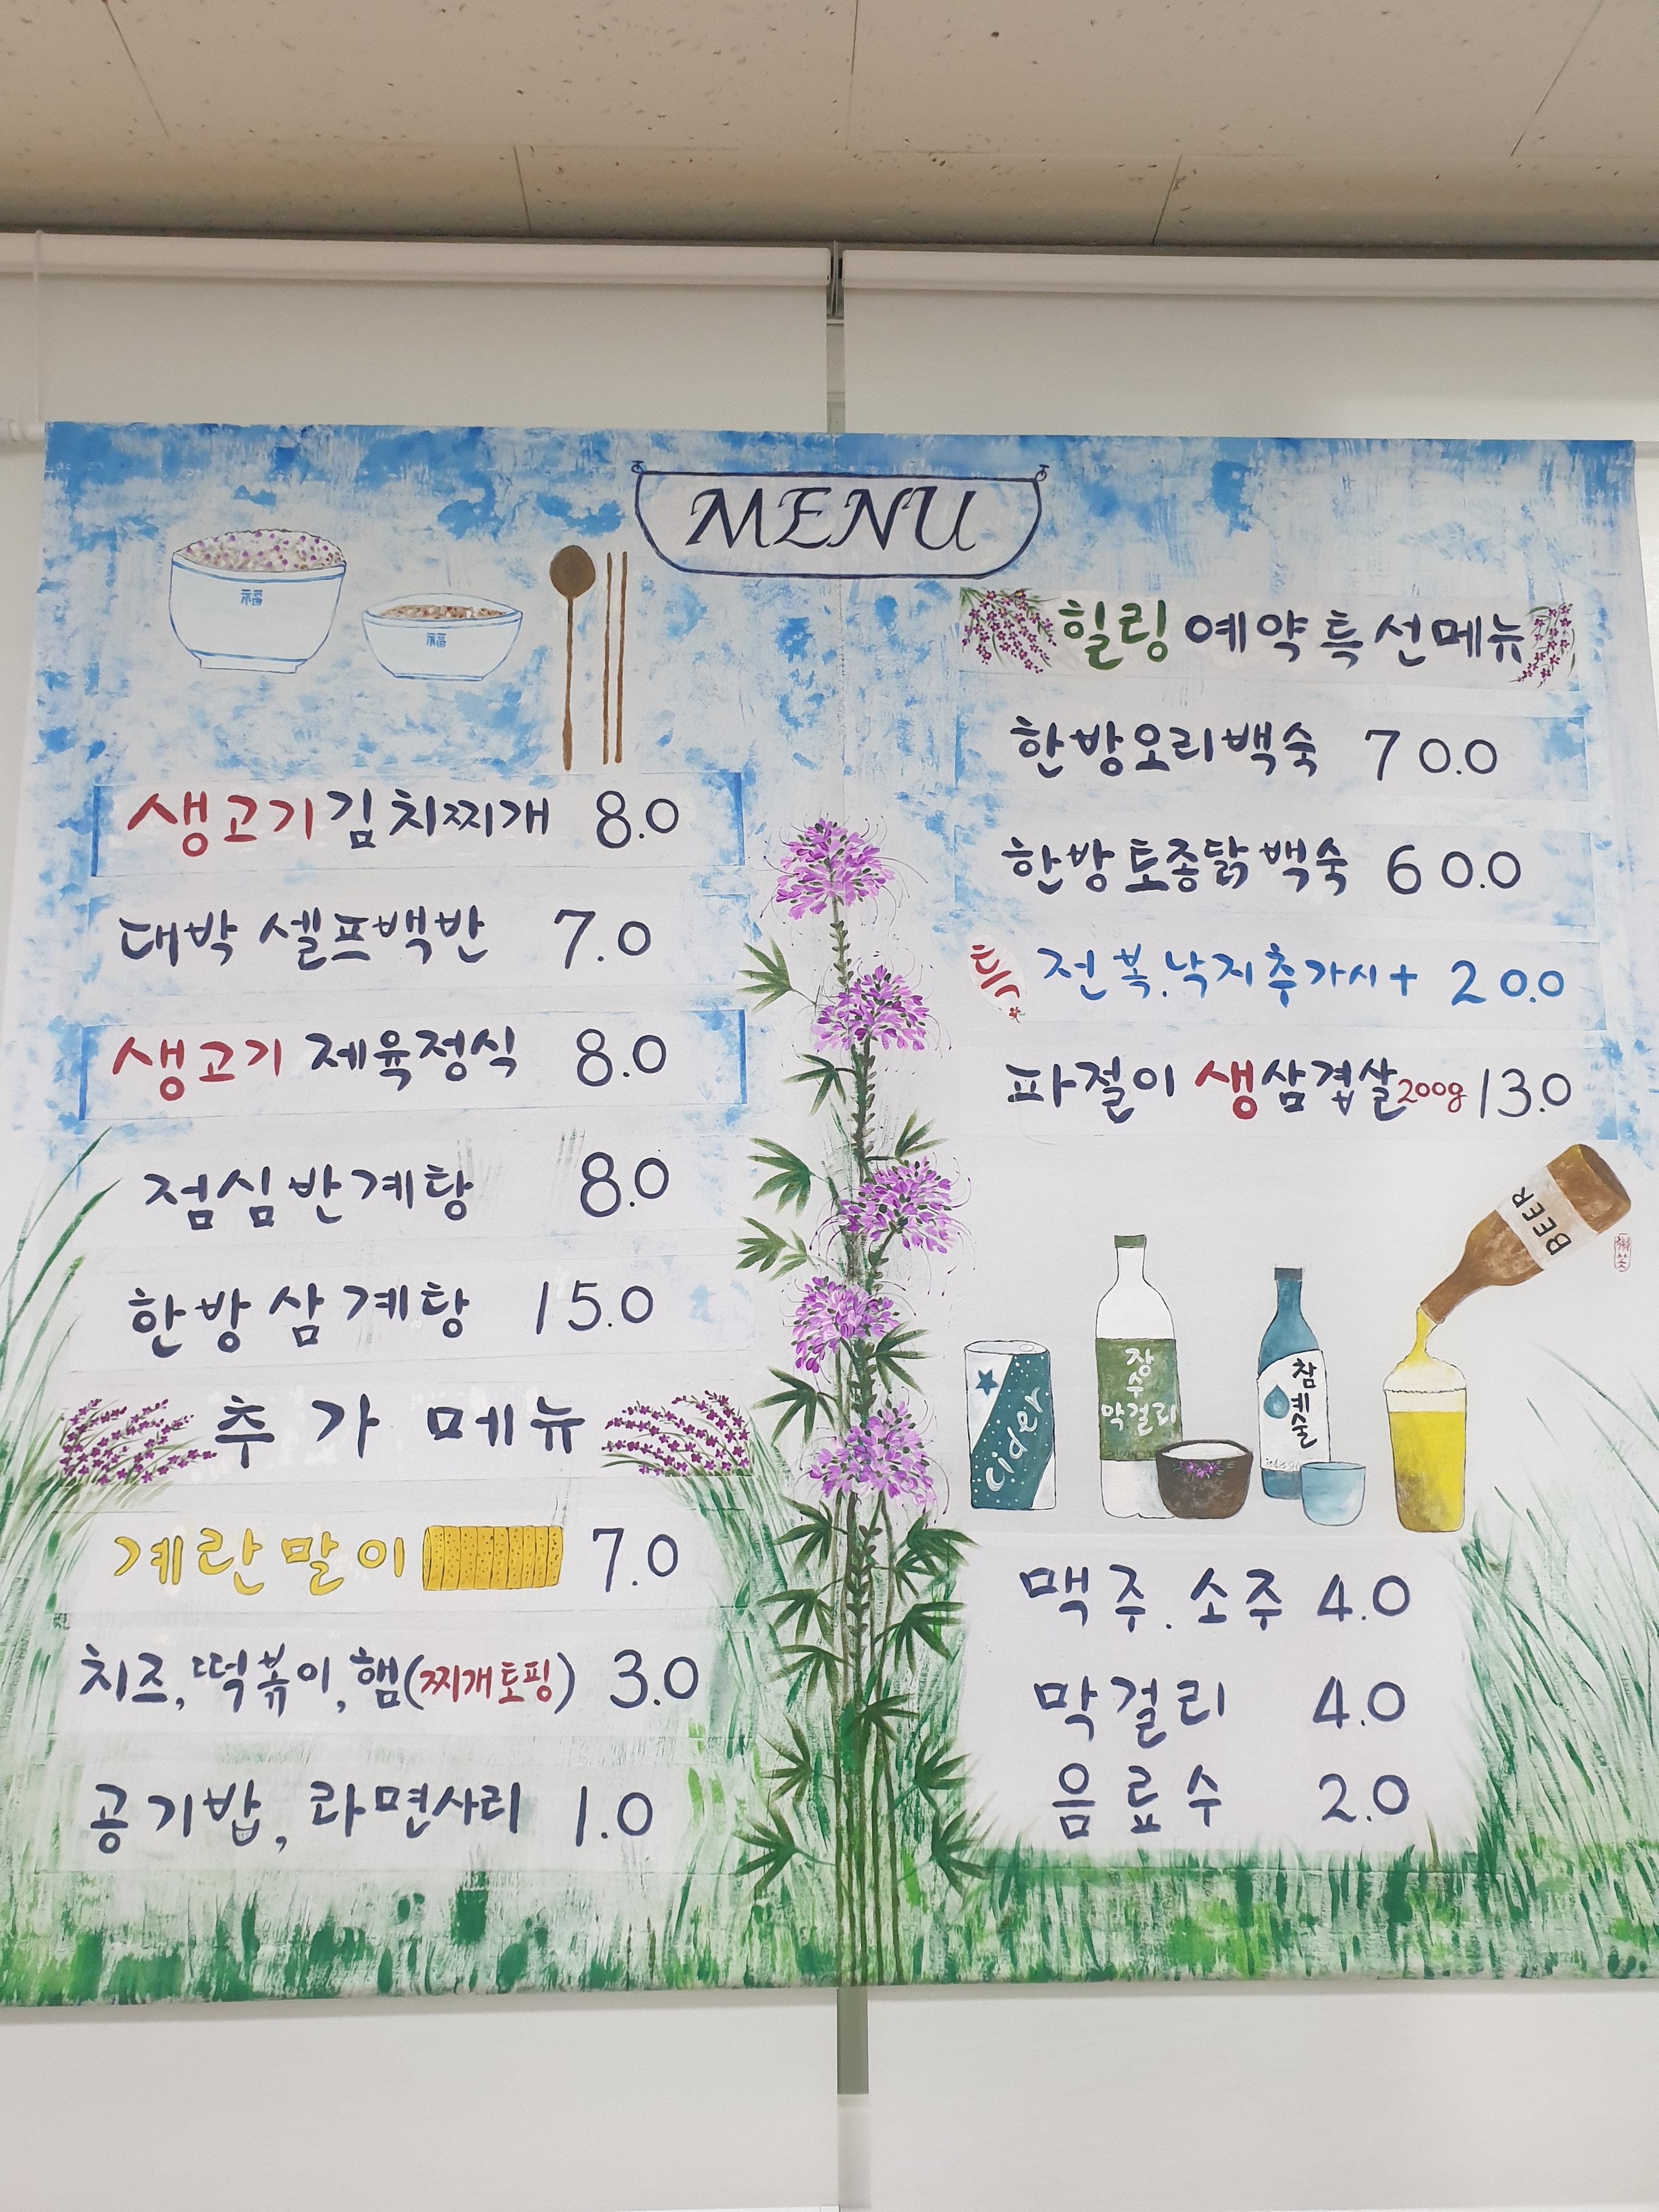 MENU
福
福
생고기 김치찌개 8.0
대박 셀프백반 7.0
생고기 제육정식 8.0
점심반계탕 8.0
한방삼계탕 15.0
추가 메뉴
계란말이 7.0
치즈, 떡볶이, 햄(찌개토핑) 3.0
공기밥, 라면사리 1.0
힐링 예약특선메뉴
한방오리백숙 70.0
한방토종닭백숙 60.0
특 전복.낙지추가시+ 20.0
파절이 생삼겹살200g 13.0
BEER
Cider
장수
막걸리
참
예
술
맥주.소주 4.0
막걸리 4.0
음료수 2.0